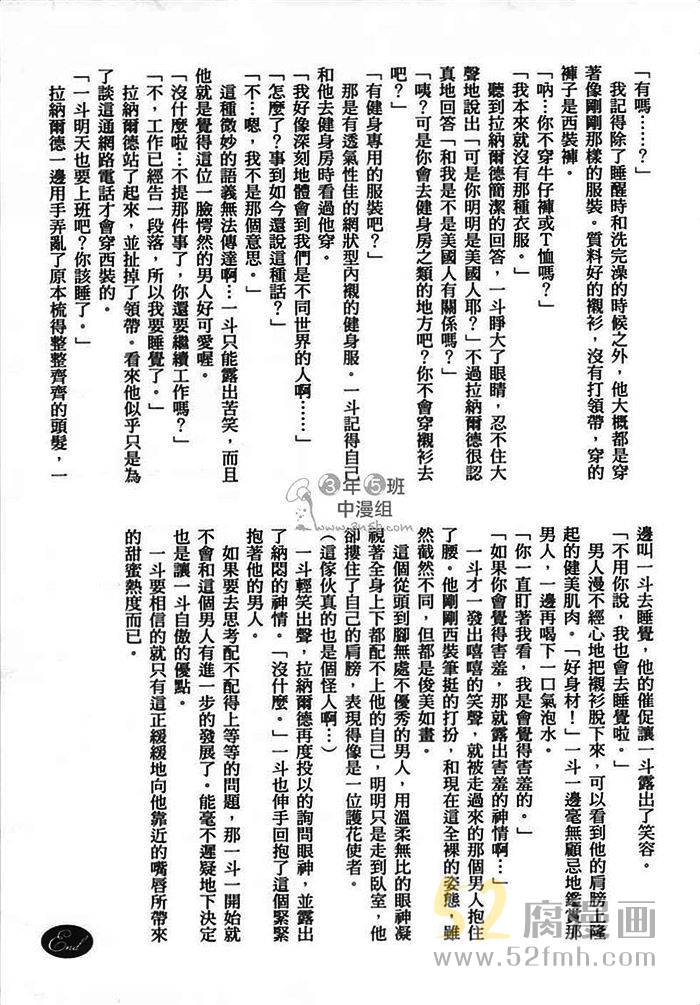 「有嗎……？」
我記得除了睡醒時和洗完澡的時候之外，他大概都是穿
著像剛剛那樣的服裝。質料好的襯衫，沒有打領帶，穿的
褲子是西裝褲。
「吶…你不穿牛仔褲或T恤嗎？」
「我本來就沒有那種衣服。」
聽到拉納爾德簡潔的回答，一斗睜大了眼睛，忍不住大
聲地說出「可是你明明是美國人耶？」不過拉納爾德很認
真地回答「和我是不是美國人有關係嗎？」
「咦？可是你會去健身房之類的地方吧？你不會穿襯衫去
吧？」
「有健身專用的服裝吧？」
那是有透氣性佳的網狀型內襯的健身服。一斗記得自己
和他去健身房時看過他穿。
「我好像深刻地體會到我們是不同世界的人啊……」
「怎麼了？事到如今還說這種話？」
「不…嗯，我不是那個意思。」
這種微妙的語義無法傳達啊…一斗只能露出苦笑，而且
他就是覺得這位一臉愕然的男人好可愛喔。
「沒什麼啦…不提那件事了，你還要繼續工作嗎？」
「不，工作已經告一段落，所以我要睡覺了。」
拉納爾德站了起來，並扯掉了領帶。看來他似乎只是為
了談這通網路電話才會穿西裝的。
「一斗明天也要上班吧？你該睡了。」
拉納爾德一邊用手弄亂了原本梳得整整齊齊的頭髮，一
邊叫一斗去睡覺，他的催促讓一斗露出了笑容。
「不用你說，我也會去睡覺啦。」
男人漫不經心地把襯衫脫下來，可以看到他的肩膀上隆
起的健美肌肉。「好身材！」一斗一邊毫無顧忌地鑑賞那
男人，一邊再喝下一口氣泡水。
「你一直盯著我看，我是會覺得害羞的。」
「如果你會覺得害羞，那就露出害羞的神情啊…」
一斗才一發出嘻嘻的笑聲，就被走過來的那個男人抱住
了腰。他剛剛西裝筆挺的打扮，和現在這全裸的姿態，雖
然截然不同，但都是俊美如畫。
這個從頭到腳無處不優秀的男人，用溫柔無比的眼神凝
視著全身上下都配不上他的自己，明明只是走到臥室，他
卻摟住了自己的肩膀，表現得像是一位護花使者。
（這傢伙真的也是個怪人啊…）
一斗輕笑出聲，拉納爾德再度投以的詢問眼神，並露出
了納悶的神情。「沒什麼。」一斗也伸手回抱了這個緊緊
抱著他的男人。
如果要去思考配不配得上等等的問題，那一斗一開始就
不會和這個男人有進一步的發展了。能毫不遲疑地下決定
也是讓一斗自傲的優點。
一斗要相信的就只有這正緩緩地向他靠近的嘴唇所帶來
的甜蜜熱度而已。
End
3年5班
中漫组
52腐漫画
www.52fmh.com